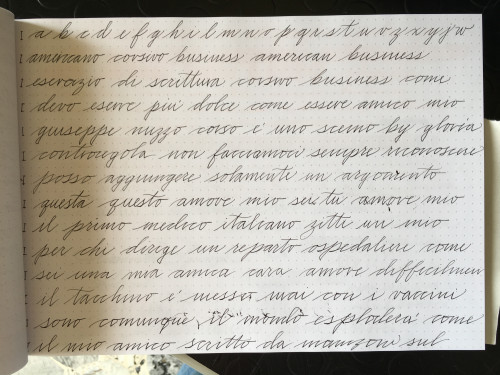 a b c d e f g h i l m n o p q r s t u v z x y j w
americano corsivo business american business
esercizio di scrittura corsivo business come
devo essere più dolce come essere amico mio
giuseppe corso i uno scemo by gloria
controregola non facciamoci sempre riconoscere
posso aggiungere solamente un argomento
questa questo amore mio sei tu amore mio
il primo medico italiano zitti un mio
per chi dirige un reparto ospedaliero come
sei una mia amica cara amore
il tacchino i con i vaccini
sono comunque il mondo esploderà come
il mio amico scritto da manzoni sul